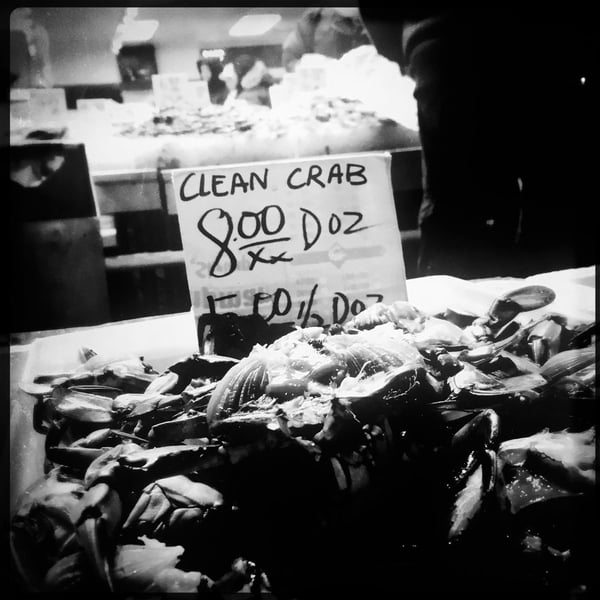 CLEAN CRAB
8.00 DOZ
xx
5.00 1/2 DOZ